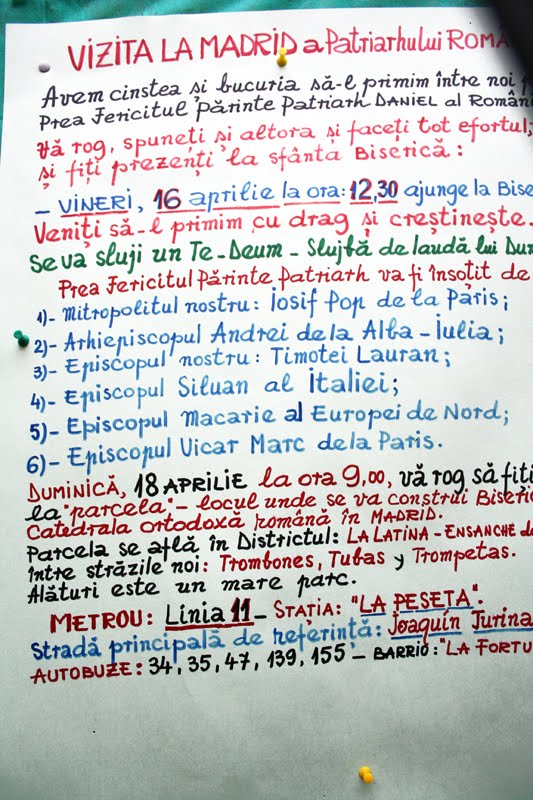 VIZITA LA MADRID a Patriarhului ROMÂ
Avem cinstea și bucuria să-l primim între noi p
Prea Fericitul Părinte Patriarh DANIEL al Români
Vă rog, spuneți și altora și faceți tot efortul,
și fiți prezenți la sfânta Biserică:
- VINERI, 16 aprilie la ora: 12,30 ajunge la Bise
Veniți să-l primim cu drag și creștinește.
Se va sluji un Te-Deum - Slujbă de laudă lui Dum
Prea Fericitul Părinte Patriarh va fi însoțit de
1)- Mitropolitul nostru: Iosif Pop de la Paris;
2)- Arhiepiscopul Andrei de la Alba-Iulia;
3)- Episcopul nostru: Timotei Lauran;
4)- Episcopul Siluan al Italiei;
5)- Episcopul Macarie al Europei de Nord;
6)- Episcopul Vicar Marc de la Paris.
DUMINICĂ, 18 APRILIE la ora 9,00, vă rog să fiți
la "parcela" - locul unde se va construi Biseric
Catedrala ortodoxă română în MADRID.
Parcela se află în Districtul: LA LATINA - ENSANCHE de
între străzile noi: Trombones, Tubas y Trompetas.
Alături este un mare parc.
METROU: Linia 11 - STAȚIA: "LA PESETA".
Stradă principală de referință: Joaquín Turina
AUTOBUZE: 34, 35, 47, 139, 155 - BARRIO: "LA FORTU